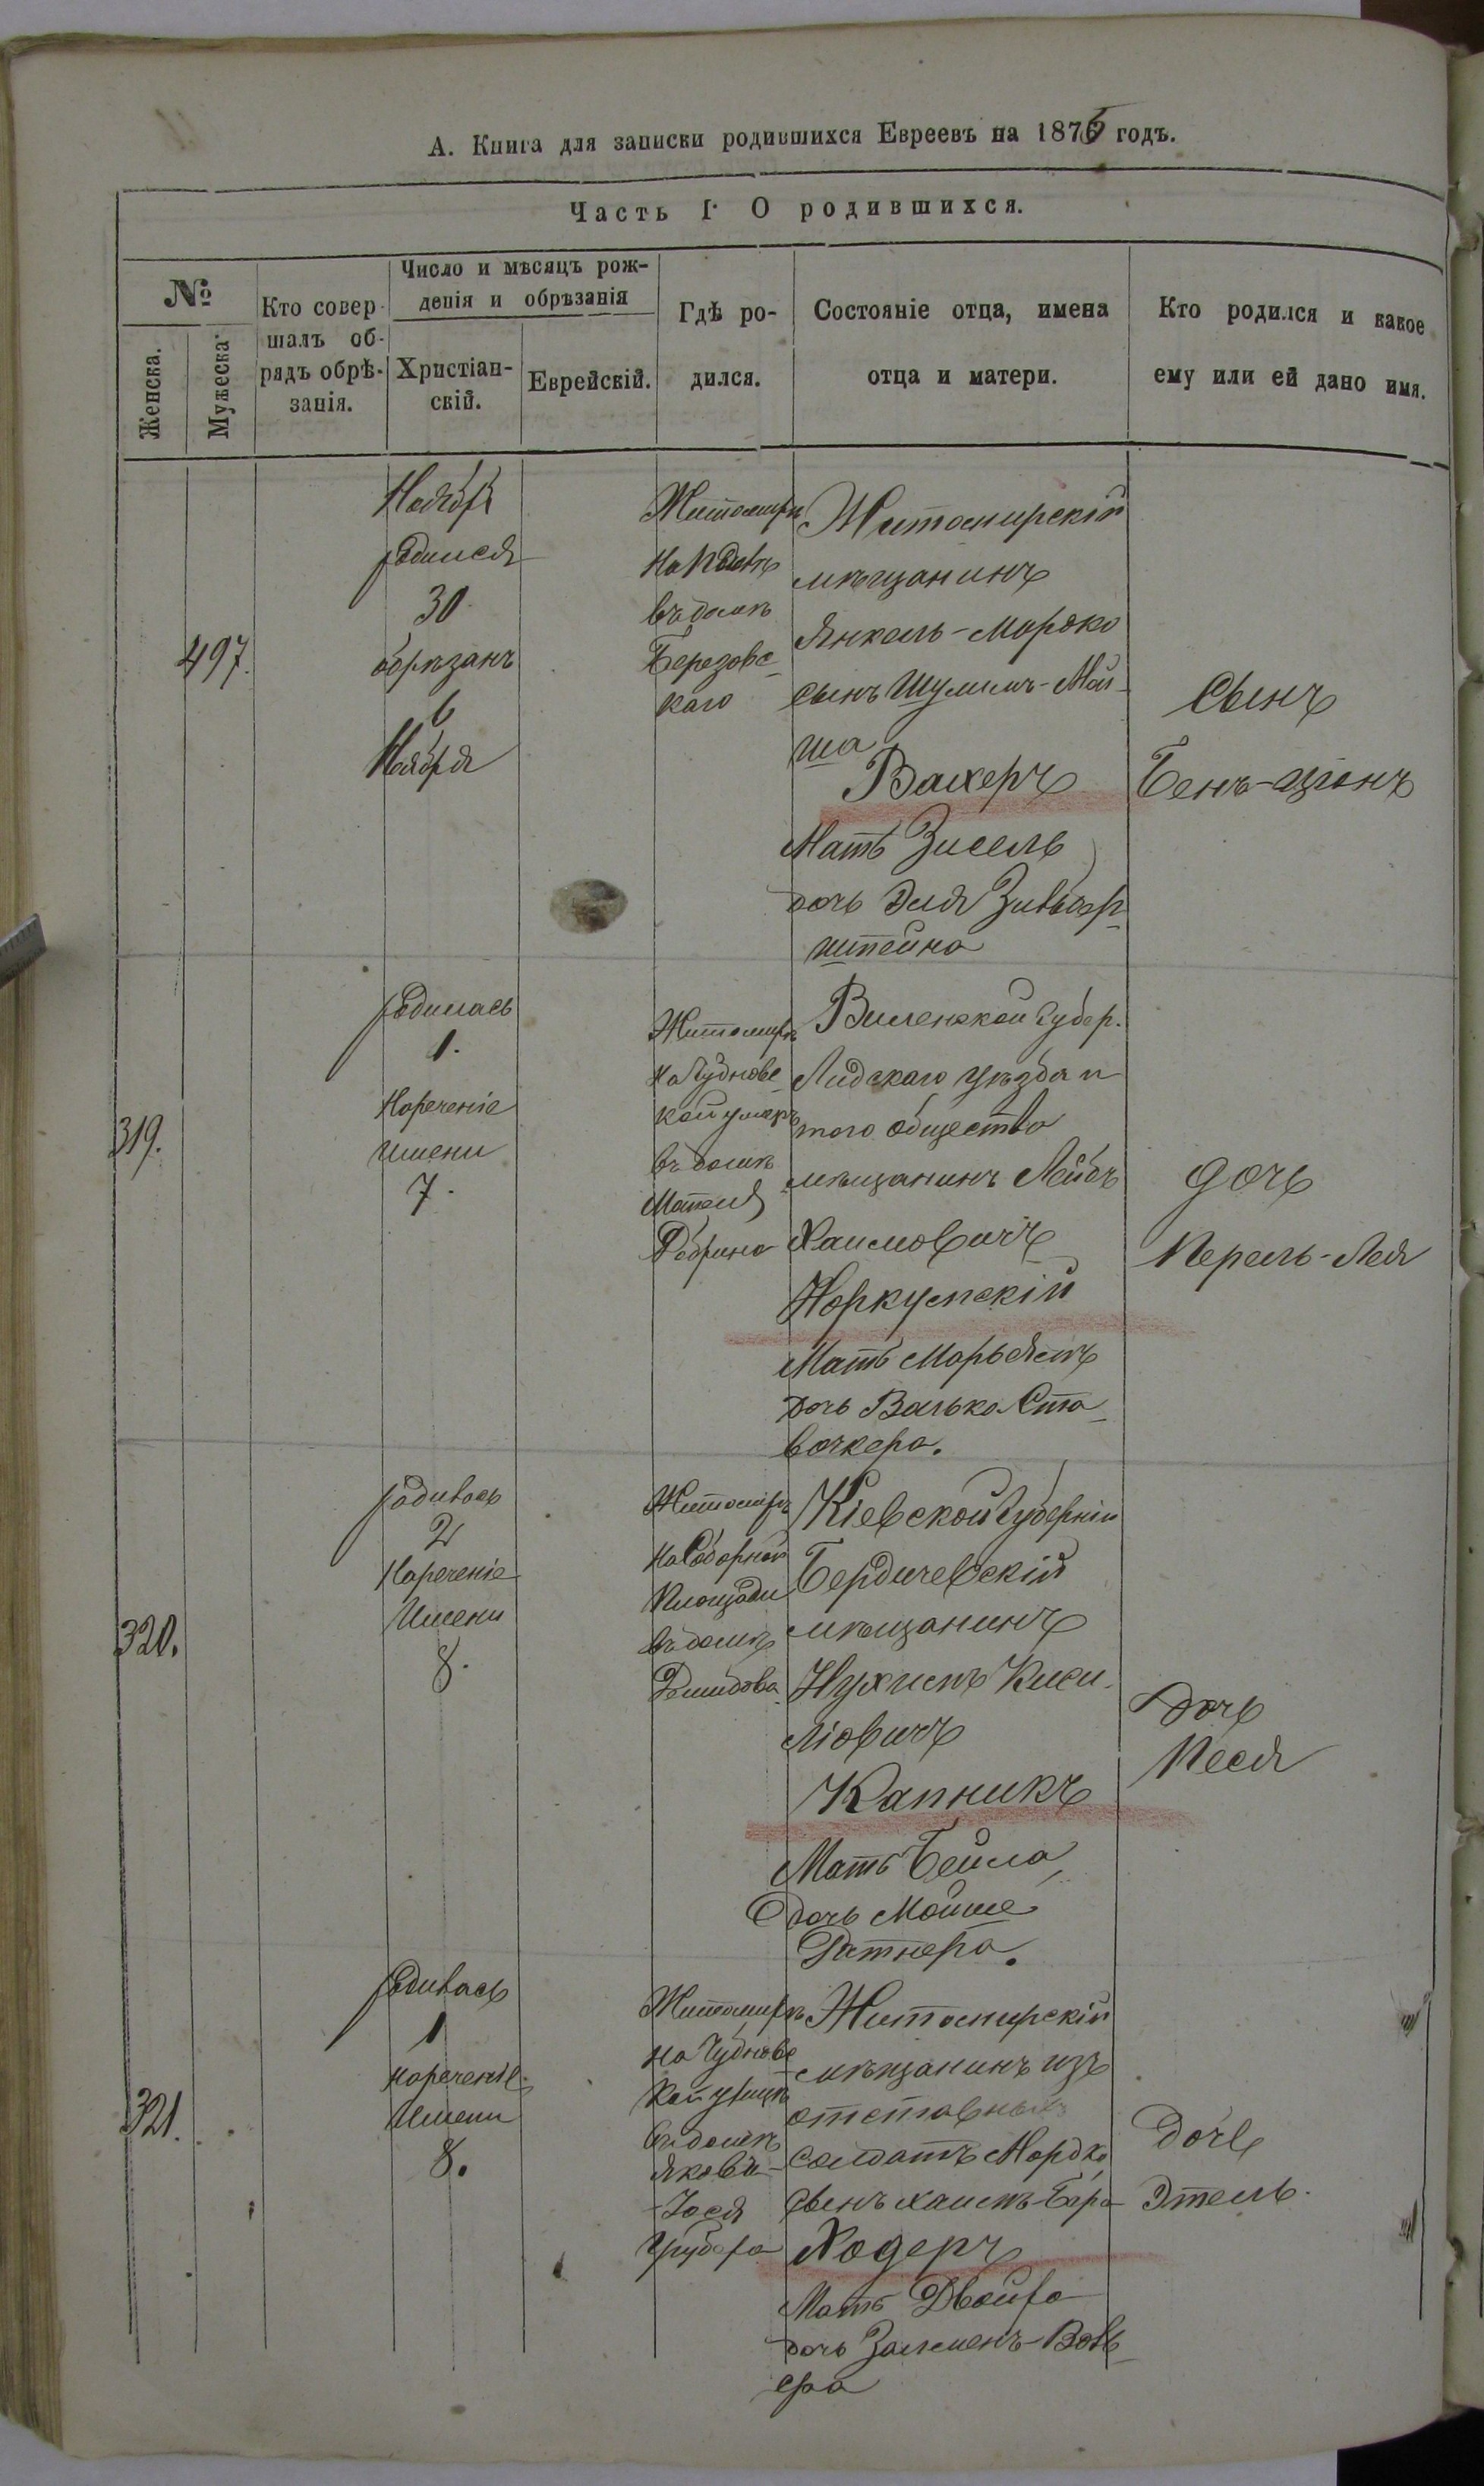 А. Книга для записки родившихся Евреевъ на 1875 годъ.
Часть I. О родившихся.
№
Женска.
Мужеска
Кто совер-
шалъ об-
рядъ обрѣ-
занія.
Число и мѣсяцъ рож-
денія и обрѣзанія
Христіан-
скій.
Еврейскій.
Гдѣ ро-
дился.
Состояніе отца, имена
отца и матери.
Кто родился и какое
ему или ей дано имя.
497.
родился
30
обрѣзанъ
6
Ноября
Житомиръ
въ домѣ
Березовс-
каго
Житомирскій
мѣщанинъ
Янкель-Мордко
сынъ Шулимъ-Мой-
ша
Вахеръ
Мать Зисель
дочь Эля Зильбер-
штейна
Сынъ
Бенъ-Ціонъ
319.
родилась
1.
Нареченіе
Имени
7.
Житомиръ
на Чудновс-
кой улицѣ
въ домѣ
Мотеля
Виленской Губер.
Лидскаго уѣзда и
того общества
мѣщанинъ Лейбъ
Хаимовичъ
Норкунскій
Мать Марьямъ
дочь Валько Ста-
вочкера.
дочь
Перель-Лея
320.
родилась
2
Нареченіе
Имени
8.
Житомиръ
на Соборной
Площади
въ домѣ
Демидова
Кіевской Губерніи
Бердичевскій
мѣщанинъ
Нухимъ Киси-
ліовичъ
Капникъ
Мать Бейла
дочь Мойше
Ратнера.
дочь
Песя
321.
родилась
1
нареченіе
Имени
8.
Житомиръ
на Чудновс
кой улицѣ
въ домѣ
Якова-
-Іося
Грубера
Житомирскій
мѣщанинъ изъ
отставныхъ
солдатъ Мордко
сынъ Хаимъ-Бера
Ходеръ
Мать Двойра
дочь Залменъ-Воль
ера
дочь
Этель.